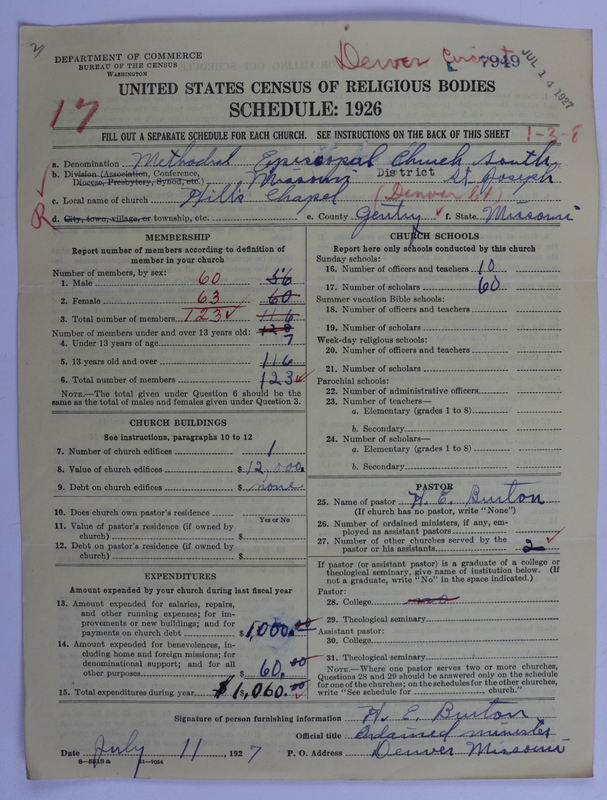 DEPARTMENT OF COMMERCE
BUREAU OF THE CENSUS
WASHINGTON
Denver Circuit
7949
JUL 14 1927
UNITED STATES CENSUS OF RELIGIOUS BODIES
SCHEDULE: 1926
17
FILL OUT A SEPARATE SCHEDULE FOR EACH CHURCH. SEE INSTRUCTIONS ON THE BACK OF THIS SHEET
1-3-8
a. Denomination Methodist Episcopal Church South
b. Division (Association, Conference, Diocese, Presbytery, Synod, etc.) Missouri District St Joseph
c. Local name of church Hill's Chapel (Denver Ct)
R
d. City, town, village, or township, etc. e. County Gentry f. State Missouri
MEMBERSHIP
Report number of members according to definition of
member in your church
Number of members, by sex:
1. Male 60 56
2. Female 63 60
3. Total number of members 123 116
Number of members under and over 13 years old: 123
4. Under 13 years of age 7
5. 13 years old and over 116
6. Total number of members 123
NOTE.—The total given under Question 6 should be the
same as the total of males and females given under Question 3.
CHURCH BUILDINGS
See instructions, paragraphs 10 to 12
7. Number of church edifices 1
8. Value of church edifices $12,000.
9. Debt on church edifices $ none
10. Does church own pastor's residence
Yes or No
11. Value of pastor's residence (if owned by
church) $
12. Debt on pastor's residence (if owned by
church) $
EXPENDITURES
Amount expended by your church during last fiscal year
13. Amount expended for salaries, repairs,
and other running expenses; for im-
provements or new buildings; and for
payments on church debt $1,000.00
14. Amount expended for benevolences, in-
cluding home and foreign missions; for
denominational support; and for all
other purposes $ 60.00
15. Total expenditures during year $1,060.00
CHURCH SCHOOLS
Report here only schools conducted by this church
Sunday schools:
16. Number of officers and teachers 10
17. Number of scholars 60
Summer vacation Bible schools:
18. Number of officers and teachers
19. Number of scholars
Week-day religious schools:
20. Number of officers and teachers
21. Number of scholars
Parochial schools:
22. Number of administrative officers
23. Number of teachers—
a. Elementary (grades 1 to 8)
b. Secondary
24. Number of scholars—
a. Elementary (grades 1 to 8)
b. Secondary
PASTOR
25. Name of pastor H. E. Burton
(If church has no pastor, write "None")
26. Number of ordained ministers, if any, em-
ployed as assistant pastors
27. Number of other churches served by the
pastor or his assistants 2
If pastor (or assistant pastor) is a graduate of a college or
theological seminary, give name of institution below. (If
not a graduate, write "No" in the space indicated.)
Pastor:
28. College no
29. Theological seminary
Assistant pastor:
30. College
31. Theological seminary
NOTE.—Where one pastor serves two or more churches,
Questions 28 and 29 should be answered only on the schedule
for one of the churches; on the schedules for the other churches,
write "See schedule for church."
Signature of person furnishing information H. E. Burton
Official title Ordained minister
Date July 11, 1927 P. O. Address Denver Missouri